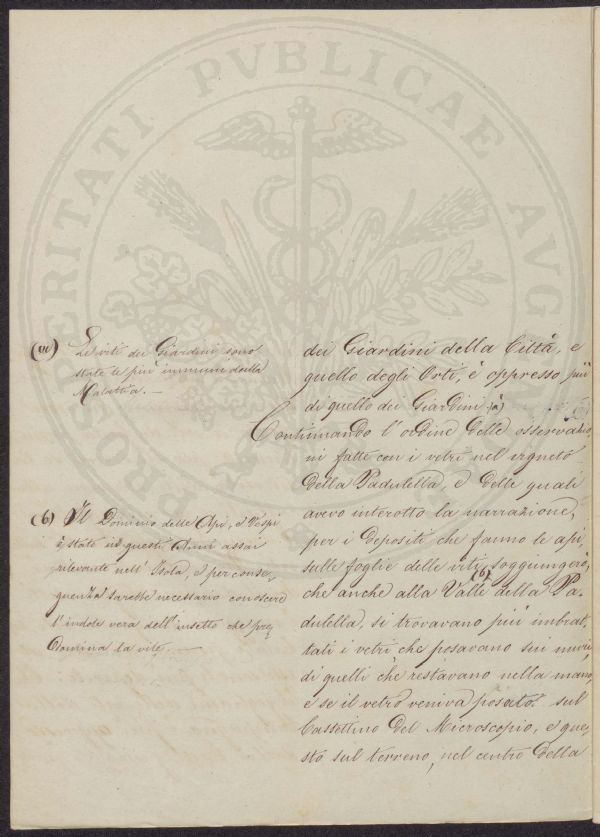 PROSPERITATI PVBLICAE AVG
(a) Le viti dei Giardini sono
state le più immuni dalla
Malattia. —
(b) Il Dominio delle Api, e Vespi
è stato in questi Anni assai
rilevante nell' Isola, e per conse-
guenza sarebbe necessario conoscere
l'indole vera dell'insetto che pre-
domina la vite. —
dei Giardini della Città, e
quello degli Orti, è oppresso più
di quello dei Giardini (a)
Continuando l' ordine delle osservazio-
ni fatte con i vetri nel vigneto
della Padulella, e delle quali
avevo interotto la narrazione,
per i depositi che fanno le api
sulle foglie delle viti (b) soggiungerò,
che anche alla Valle della Pa-
dulella, si trovavano più imbrat-
tati i vetri che posavano sui muri,
di quelli che restavano nella mano,
e se il vetro veniva posato sul
Cassettino del Microscopio, e que-
sto sul terreno, nel centro della